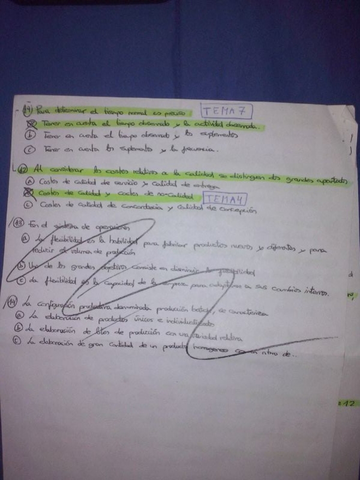 Para determinar el tiempo normal es preciso TEMA 7
a) Tener en cuenta el tiempo observado y la actividad observada
b) Tener en cuenta el tiempo observado y los suplementos
c) Tener en cuenta los suplementos y la frecuencia.
12) Al considerar los costes relativos a la calidad se distinguen dos grandes apartados
a) Costes de calidad de servicio y calidad de entrega
b) Costes de calidad y costes de no-calidad TEMA 4
c) Costes de calidad de concordancia y calidad de concepción
En el sistema de operaciones
a) La flexibilidad es la habilidad para fabricar productos nuevos y diferentes y para
reducir el volumen de producción
b) Uno de los grandes objetivos consiste en disminuir la
c) La flexibilidad es la capacidad de la empresa para
La configuración productiva denominada producción
a) La elaboración de productos únicos e individualizados
b) La elaboración de lotes de producción con
c) La elaboración de gran cantidad de un producto homogéneo con un